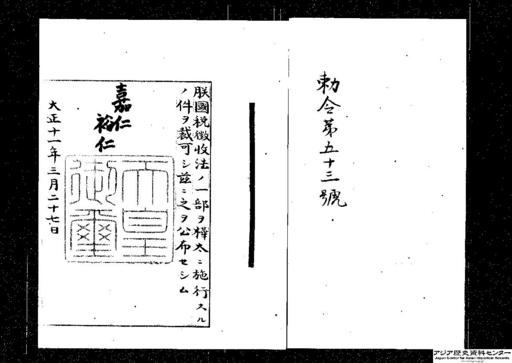 勅令第五十三號
朕國税徴收法ノ一部ヲ樺太ニ施行スル
ノ件ヲ裁可シ茲ニ之ヲ公布セシム
嘉仁
裕仁
天皇御璽
大正十一年三月二十七日
アジア歴史資料センター
Japan Center for Asian Historical Records